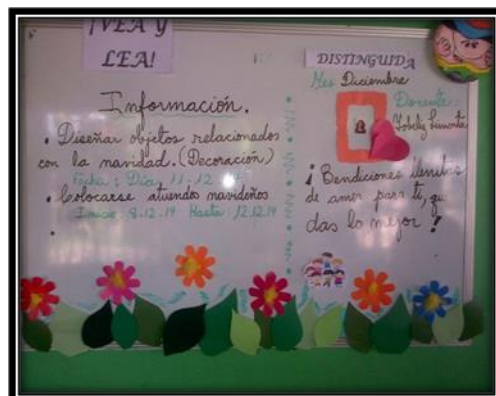 ¡VEA Y
LEA!
Información.
• Diseñar objetos relacionados
con la navidad. (Decoración)
Fecha: Día 11-12
• Colocarse atuendos navideños
Inicio: 8.12.14 Hasta: 12.12.14
•
DISTINGUIDA
Mes Diciembre
Docente:
Yobelis Pimenta
¡Bendiciones llenitas
de amor para ti, que
das lo mejor!